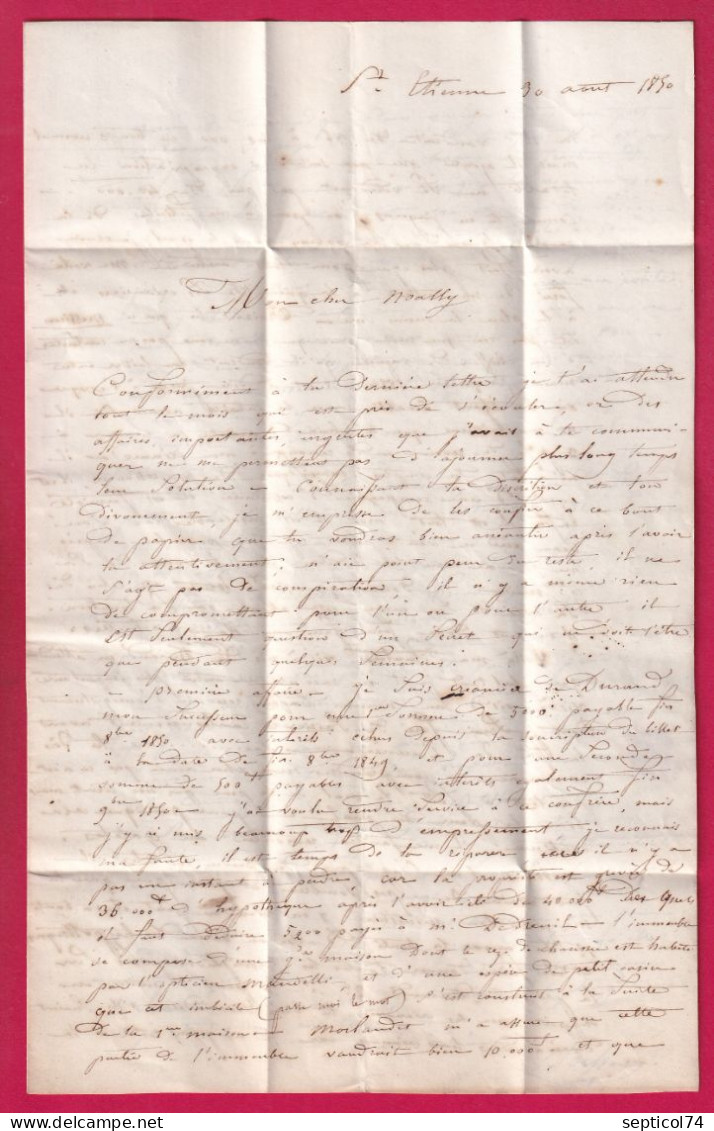 St Etienne 30 aout 1850
Mon cher Noally
Conformément à ta dernière lettre je t'ai attendu
tout le mois qui est près de s'écouler, or des
affaires importantes, urgentes que j'avais à te communi
quer ne me permettent pas d'ajourner plus long temps
leur solution - Connaissant ta discrétion et ton
dévouement, je m'empresse de les confier à ce bout
de papier que tu voudras bien anéantir après l'avoir
lu attentivement; n'aie point peur du reste, il ne
s'agit pas de conspiration, il n'y a même rien
de compromettant pour l'un ou pour l'autre il
est seulement question d'un secret qui ne doit l'être
que pendant quelques semaines.
- première affaire - je suis créancier de Durand
mon successeur pour une somme de 5000f payable fin
8bre 1850 avec intérêts échus depuis la souscription du billet
à la date de fin 8bre 1849 et pour une seconde
somme de 500 payables avec intérêts également fin
9bre 1850 - j'ai voulu rendre service à ce confrère, mais
j'y ai mis beaucoup trop d'empressement je reconnais
ma faute, il est temps de la réparer il n'y a
pas un instant à perdre car la est de
36.000f d'hypothèque après l'avoir été de 40.000f des quels
il faut déduire 5200 payés à Mr Dedreuil - l'immeuble
se compose d'une maison dont le rez de chaussée est habité
par l'opticien et d'une espèce de petit casier
que cet imbécile (passe moi le mot) s'est construit à la suite
de la 1ère maison - Morlandet m'a assuré que cette
partie de l'immeuble vaudrait bien 10.000f et que
delcampe.net
septicol74